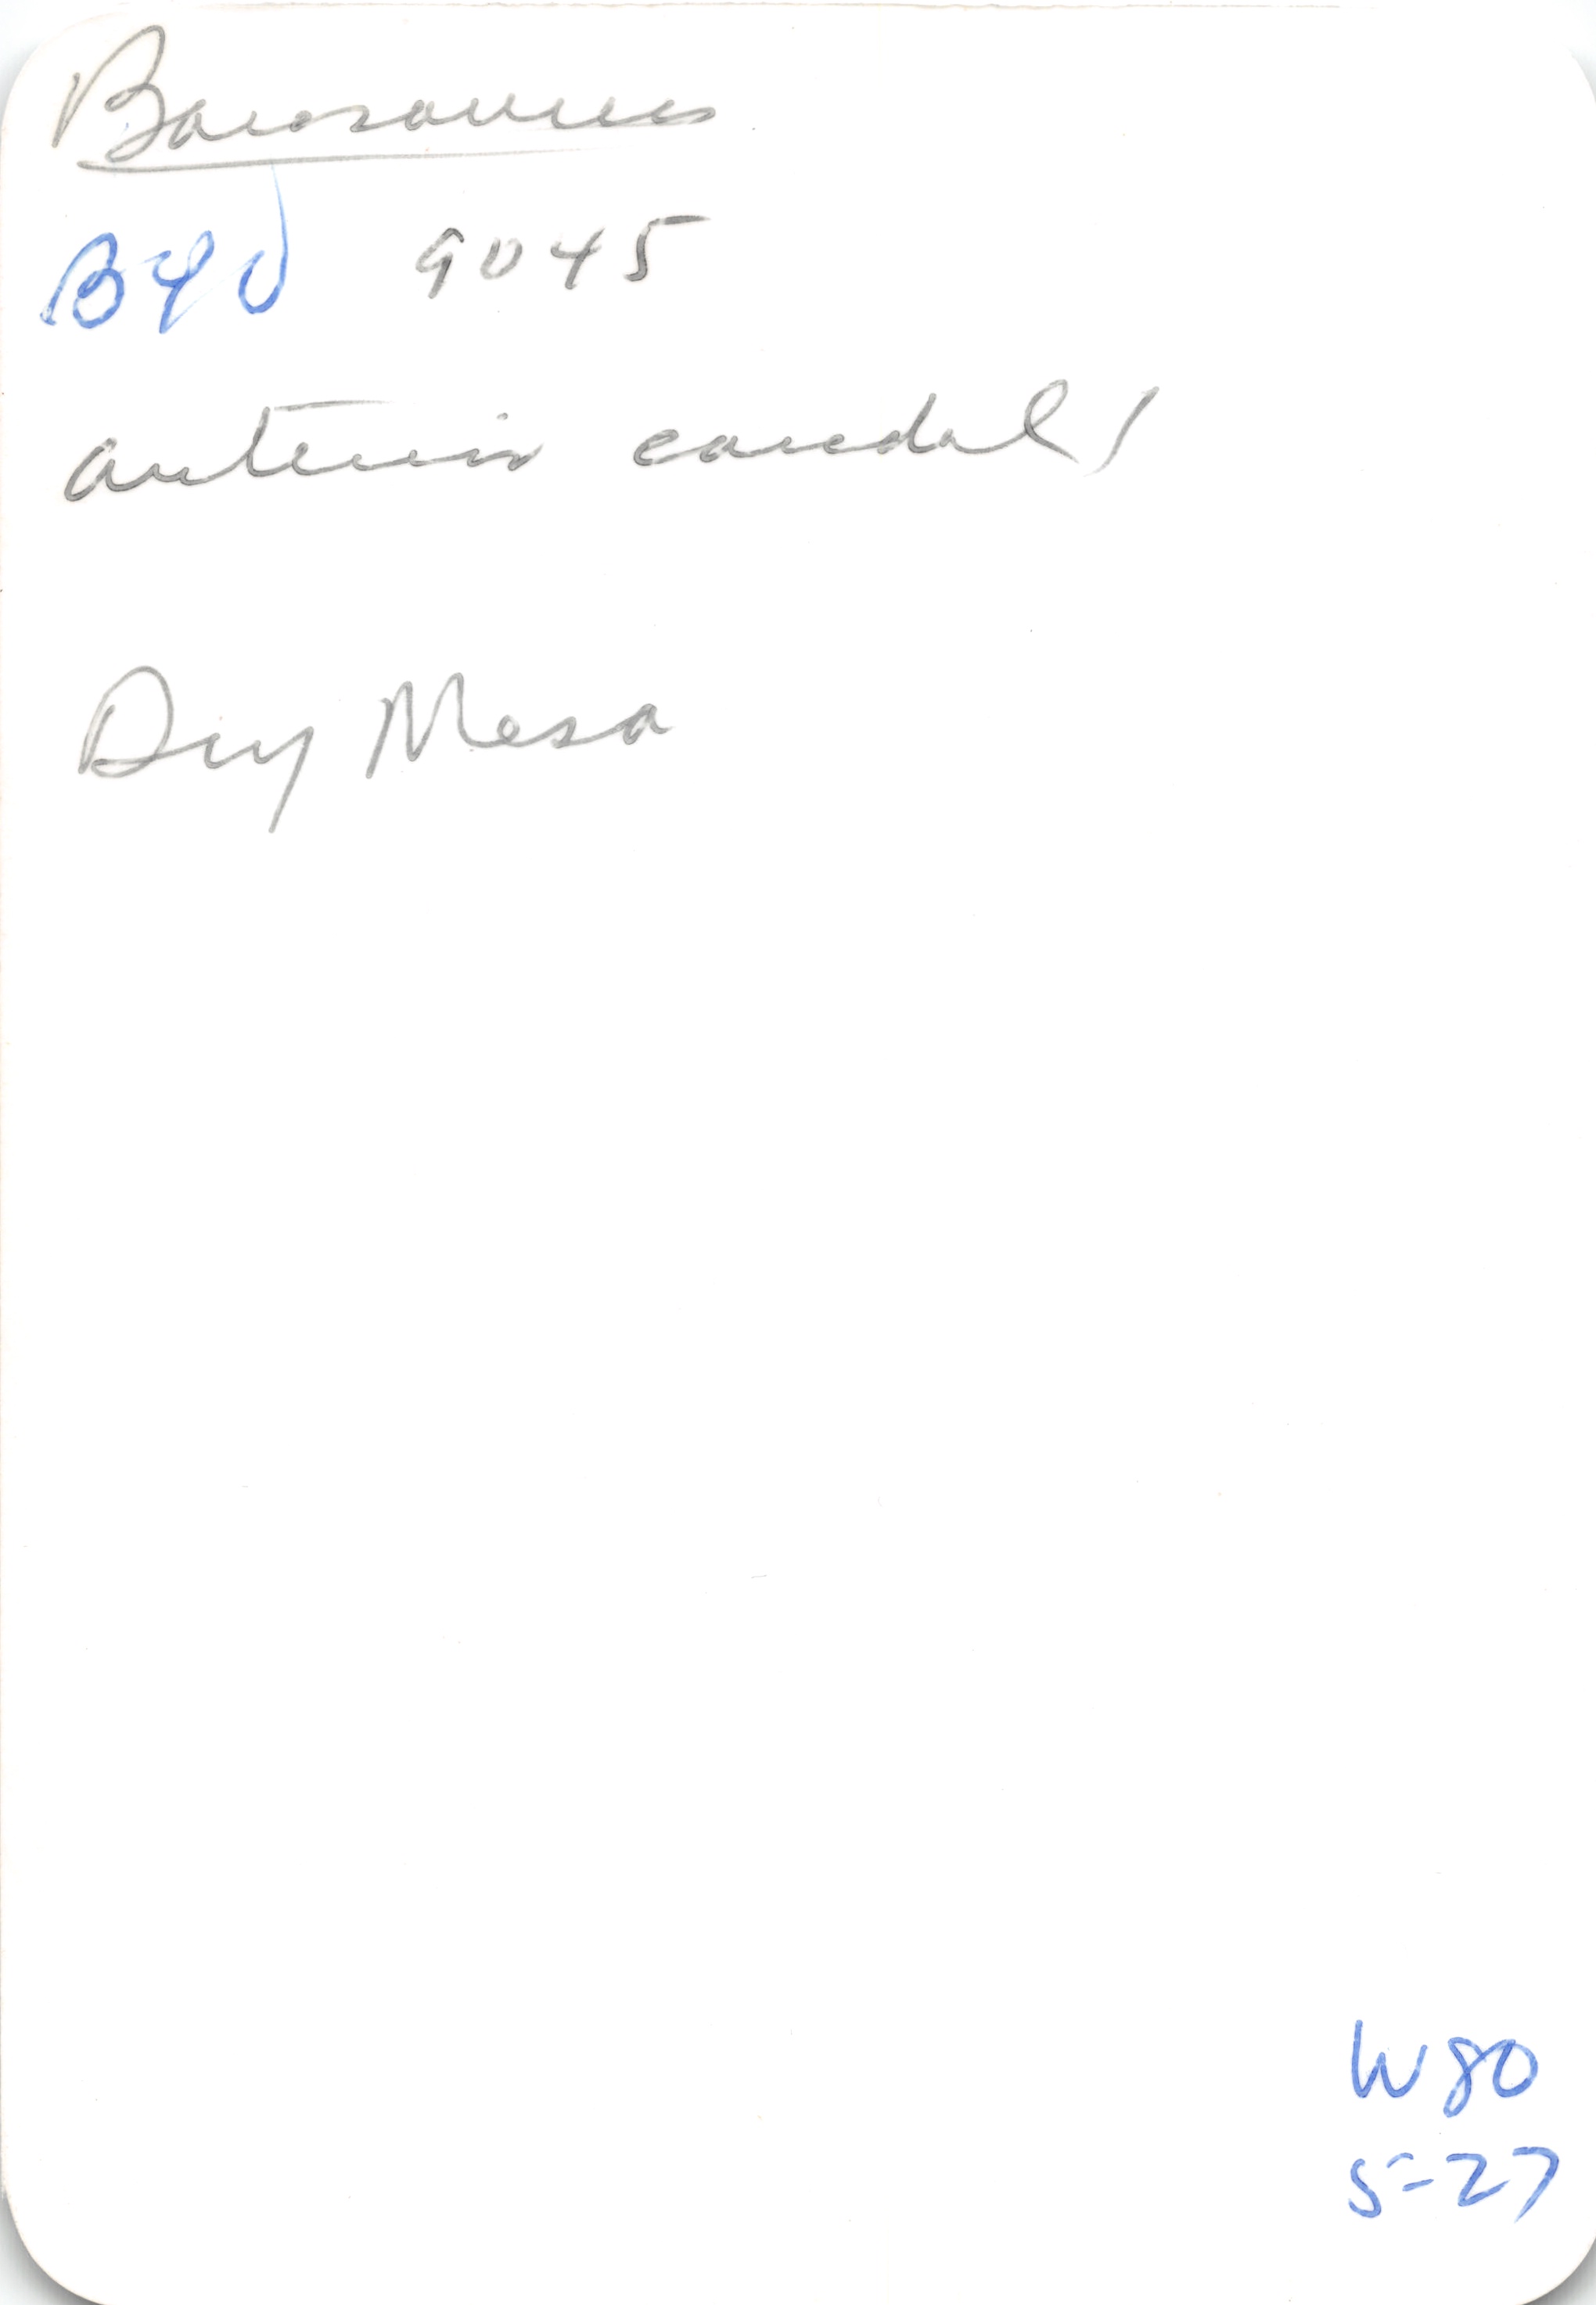 Barosaurus
BYU 9045
anterior caudal /
Dry Mesa
W80
5-27